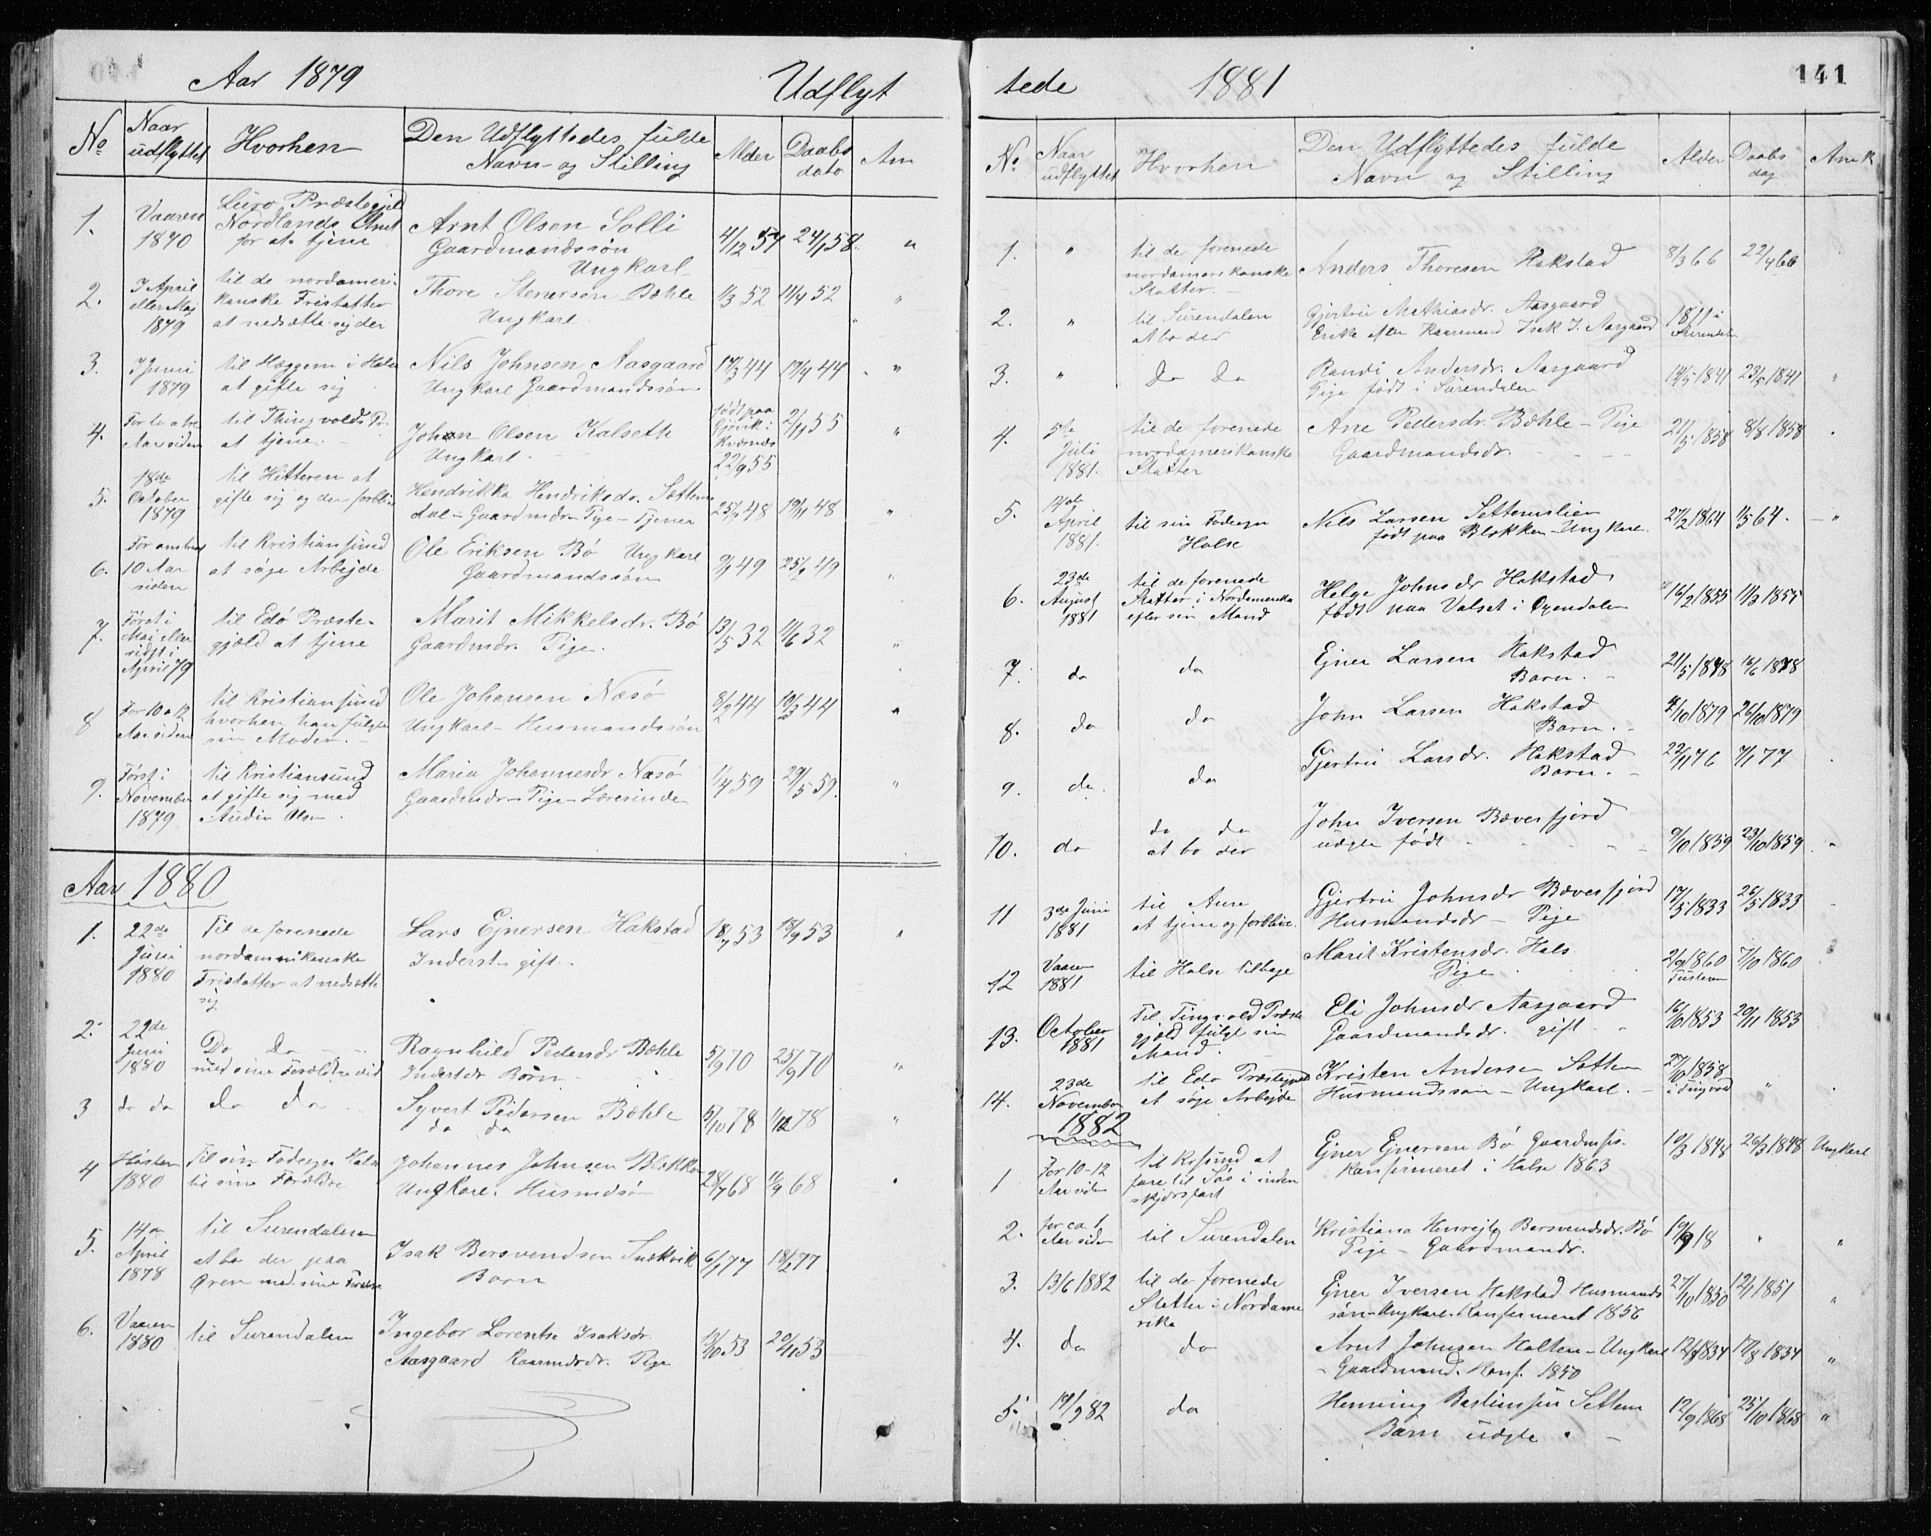 Aar 1879
Udflyt
No
Naar udflyttet
Hvorhen
Den Udflyttedes fulde
Navn og Stilling
Alder
Daabs dato
Anm
1. Vaaren 1870
Luro Præstegjeld
Nordlands Amt
for at tjene
Arnt Olsen Solli
Gaardmandssøn
Ungkarl
4/12 57 24/1 58 "
2. I April eller Maj 1879
til de nordameri-
kanske Fristatter
at nedsætte sig der
Thore Stenersen Bæhle
Ungkarl
1/3 52 11/4 52 "
3. I Juni 1879
til Hæggem i Halse
at gifte sig
Nils Johnsen Aasgaard
Ungkarl Gaardmandssøn
17/3 44 17/4 44 "
4. For to a tre Aar siden
til Thingvolds Pr.
at tjene.
Johan Olsen Kalseth
Ungkarl.
født paa Gjøvik i Kvernes 22/9 55
2/11 55 "
5. 18de October 1879
til Hitteren at
gifte sig og der forbli
Hendrikka Hendriksdr. Settem
dal - Gaardmdr - Pige - Tjener
25/7 48 19/11 48 "
6. For omtrent 10 Aar siden
til Kristiansund
at søge Arbejde
Ole Eriksen Bø Ungkarl
Gaardmandssøn
9/1 49 25/2 49 "
7. Først i Mai eller sidst i April 79
til Edø Præste-
gjæld at tjene
Marit Mikkelsdr. Bø
Gaardmdr. Pige.
13/5 32 11/6 32 "
8 For 10 a 12 Aar siden
til Kristiansund
hvorhen han fulgte
sin Moder. -
Ole Johansen Næsø
Ungkarl - Husmandssøn
8/2 44 10/3 44 "
9. Først i November 1879
til Kristiansund
at gifte sig med
Audin Olsen.
Maria Johannesdr Næsø
Gaardmdr - Pige - Lærerinde
1/4 59 29/5 59. "
Aar 1880
1. 22de Juni 1880
Til de forenede
nordamerikanske
Fristatter at nedsætte
sig
Lars Ejnersen Hakstad
Inderst - gift -
18/7 53 18/9 53 "
2. 22de Juni 1880
Do Do
med sine Forældre did
Ragnhild Pedersdr Bæhle
Inderstdr Barn -
5/9 70 25/9 70 "
3 do do
do do
Syvert Pedersen Bæhle
do do
5/10 78 1/12 78 "
4 Høsten 1880
Til sin Fødeegn Halse
til sine Forældre
Johannes Johnsen Blekken
Ungkarl. Husmdsøn
28/7 68 1/9 68 "
5. 14de April 1878
til Surendalen
at bo der paa
Øren med sine Forældre
Isak Bersvendsen Snekvik
Barn
6/1 77 18/2 77
6. Vaaren 1880
til Surendalen
Ingebor Lorentse Isaksdr.
Aasgaard Kaarmdsdr. Pige
13/10 53 20/11 53
tede
1881
141
No
Naar udflyttet
Hvorhen
Den Udflyttedes fulde
Navn og Stilling
Alder
Daabs dag
Anmk
1. "
til de forenede
nordamerikanske
Statter. -
Anders Thoresen Hakstad
8/3 66 22/4 66
2. "
til Surendalen
at bo der
Gjertru Mathiasdr. Aasgaard
Enke efter Kaarmand Isak I. Aasgaard
1811 i Surendalen
3. "
Do Do
Randi Andersdr. Aasgaard
Pige født i Surendalen
14/5 1841 23/5 1841 "
4. 5te Juli 1881.
til de forenede
nordamerikanske
Statter
Ane Pedersdr. Bæhle - Pige
Gaardmandsdr.
21/5 1858 8/8 1858 .
5. 14de April 1881.
til sin Fødeegn
Halse
Nils Larsen Settemslien
født paa Blekken - Ungkarl.
27/2 1864 1/5 64. "
6. 23de August 1881
til de forenede
Statter i Nordamerika
efter sin Mand
Helge Johnsdr Hakstad
født paa Valset i Øxendalen
16/2 1855 11/3 1855
7. do
do
Ejner Larsen Hakstad
Barn. -
21/5 1878 16/6 1878
8. do
do
John Larsen Hakstad
Barn. -
4/10 1879 26/10 1879
9. do.
do
Gjertru Larsdr. Hakstad
Barn. -
22/11 76 7/1 77
10. do
do do
at bo der
John Iversen Bæverfjord
udgte født -
9/10 1859 23/10 1859. "
11 3de Juni 1881
til Aure
at tjene og forblive.
Gjertru Johnsdr Bæverfjord
Husmandsdr - Pige
17/5 1833 26/5 1833
12 Vaaren 1881
til Halse tilbage
Marit Kristensdr. Hals
Pige
2/9 1860 Tusteren
7/10 1860
13. October 1881
Til Tingvold Præste
gjeld fulgt sin
Mand.
Eli Johnsdr Aasgaard
Gaardmandsdr. gift -
16/10 1853 20/11 1853
14. 23de November
til Edø Præstegjeld
at søge Arbejde
Kristen Andersen Settem
Husmandssøn - Ungkarl. -
27/10 1858 i Tingvold
"
1882
1 For 10-12 Aar siden
til Krsund at
fare til Søs i inden
skjærsfart
Ejner Ejnersen Bø Gaardmds.
konfirmeret i Halse 1863
10/3 1848 26/3 1848 Ungkarl
2. for ca 1 Aar siden
til Surendalen
Kristiana Henrejte Bersvendsdr. Bø
Pige - Gaardmandsdr.
10/9 18 " "
3. 13/6 1882
til de forenede
Statter i Nordame
rika
Ejner Iversen Hakstad Husmands
søn - Ungkarl. Konfirmeret 1856
27/10 1850 12/1 1851 "
4. do
do
Arnt Johnsen Holten - Ungkarl
- Gaardmand. Konf. 1850
12/8 1834 17/8 1834 "
5. 19/9 82
do
Henning Bastiansen Settem
Barn udgte . -
12/9 1868 25/10 1868 "